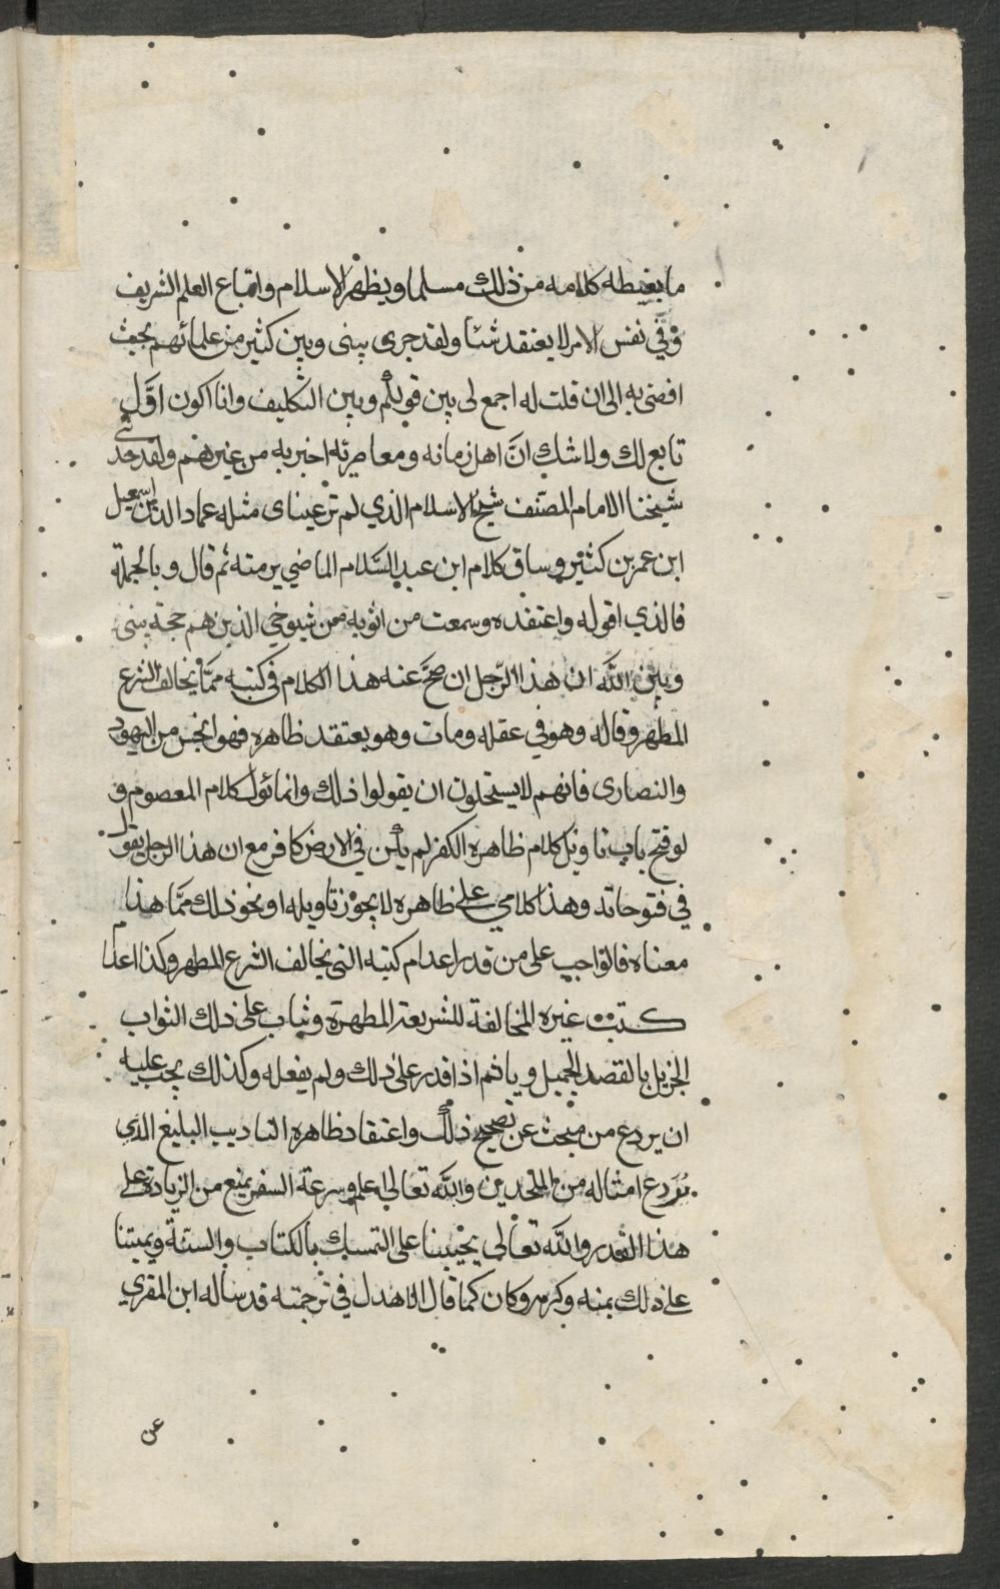 ما يغيطه كلامه من ذلك مسلما ويظهر الاسلام واتباع العلم الشريف
وفي نفس الامر لا يعتقد شئا ولقد جرى بيني وبين كثير من علمائهم بحث
افضى به الى ان قلت له اجمع لي بين قولكم وبين التكليف وانا اكون اوّل
تابع لك ولا شك انّ اهل زمانه ومعاصريه اخبر به من غيرهم ولقد حدثني
شيخنا الامام المصنف شيخ الاسلام الذي لم تر عيناى مثله عماد الدين اسمعيل
ابن عمر بن كثير وساق كلام ابن عبد السّلام الماضي برمته ثم قال وبالجملة
فالذي اقوله واعتقده وسمعت من اثق به من شيوخي الذين هم حجة بيني
وبين الله ان هذا الرّجل ان صحّ عنه هذا الكلام في كتبه ممّا يخالف الشرع
المطهر وقاله وهو في عقله ومات وهو يعتقد ظاهره فهو انجس من اليهود
والنصارى فانهم لا يستحلون ان يقولوا ذلك وانما نؤل كلام المعصوم و
لو فتح باب تاويل كلام ظاهره الكفر لم يكن في الارض كافر مع ان هذا الرجل يقول
في فتوحاته وهذا كلامي على ظاهره لا يجوز تاويله او نحو ذلك ممّا هذا
معناه فالواجب على من قدر اعدام كتبه التي تخالف الشرع المطهر وكذا اعدام
كتب غيره المخالفة للشريعة المطهرة ويثاب على ذلك الثواب
الجزيل بالقصد الجميل وياثم اذا قدر على ذلك ولم يفعله وكذلك يجب عليه
ان يردع من يبحث عن تصحيح ذلك واعتقاد ظاهره التاديب البليغ الذي
يردع امثاله من الملحدين والله تعالى اعلم وسرعة السفر يمنع من الزيادة على
هذا القدر والله تعالى يحيينا على التمسك بالكتاب والسنّة ويميتنا
على ذلك بمنه وكرمه وكان كما قال الاهدل في ترجمته قد ساله ابن المقري
عن